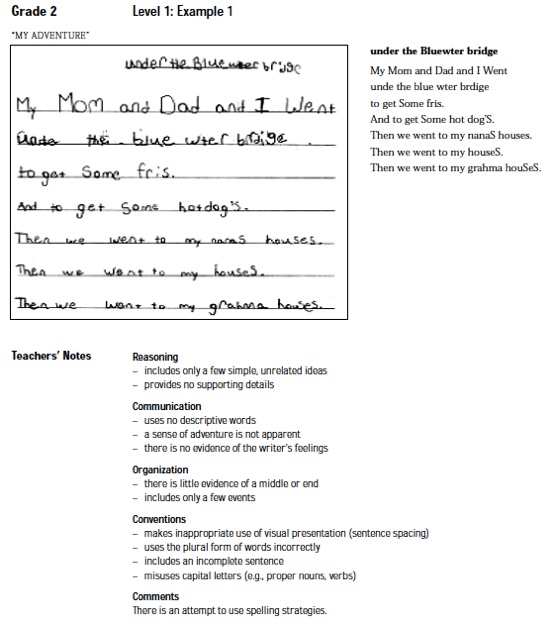 Grade 2 Level 1: Example 1
"MY ADVENTURE"
under the Bluewter bridge
My Mom and Dad and I Went
unde the blue wter brdige
to get Some fris.
And to get Some hotdog'S.
Then we went to my nanaS houses.
Then we went to my houseS.
Then we went to my grahma houSeS.
under the Bluewter bridge
My Mom and Dad and I Went
unde the blue wter brdige
to get Some fris.
And to get Some hot dog'S.
Then we went to my nanaS houses.
Then we went to my houseS.
Then we went to my grahma houSeS.
Teachers' Notes
Reasoning
– includes only a few simple, unrelated ideas
– provides no supporting details
Communication
– uses no descriptive words
– a sense of adventure is not apparent
– there is no evidence of the writer's feelings
Organization
– there is little evidence of a middle or end
– includes only a few events
Conventions
– makes inappropriate use of visual presentation (sentence spacing)
– uses the plural form of words incorrectly
– includes an incomplete sentence
– misuses capital letters (e.g., proper nouns, verbs)
Comments
There is an attempt to use spelling strategies.